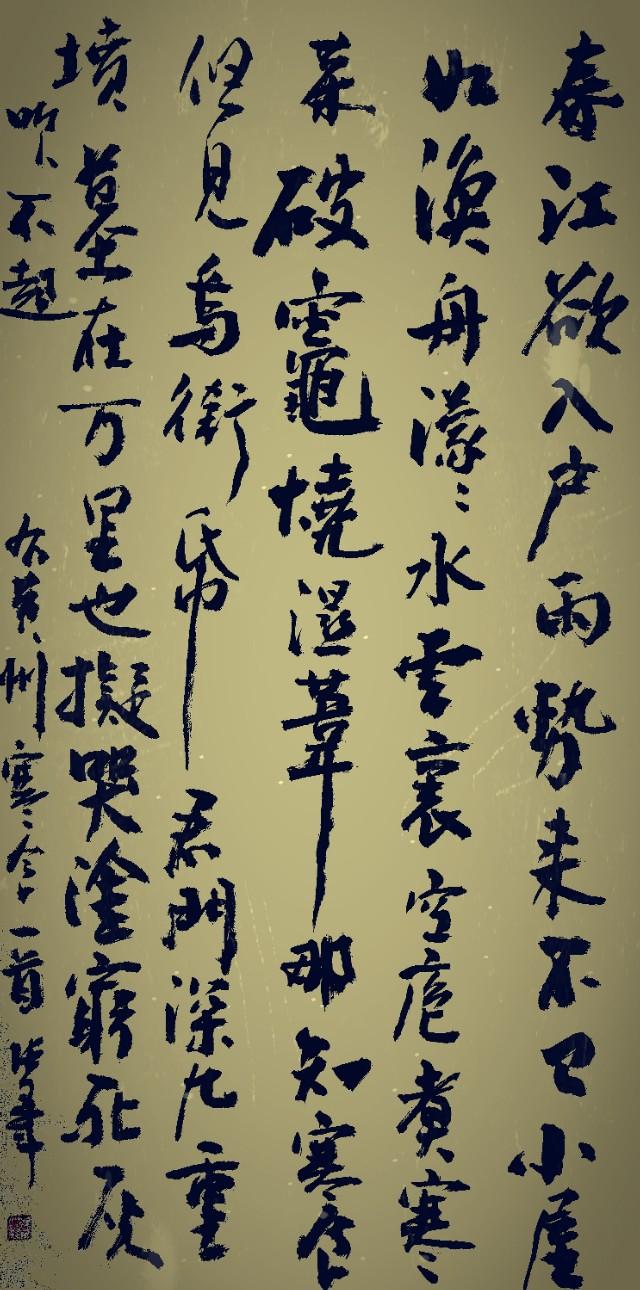 春江欲入户雨勢来不已小屋
如漁舟濛〻水雲裏空庖煮寒
菜破竈燒濕葦那知寒食
但見烏銜帋君門深九重
墳墓在万里也擬哭塗窮死灰
吹不起
右黄州寒食一首